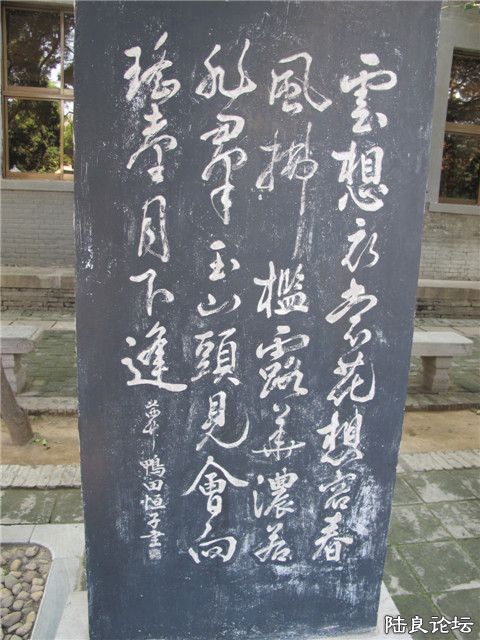 雲想衣裳花想容春
風拂檻露華濃若
非羣玉山頭見會向
瑤臺月下逢
鴨田恒子書
陆良论坛